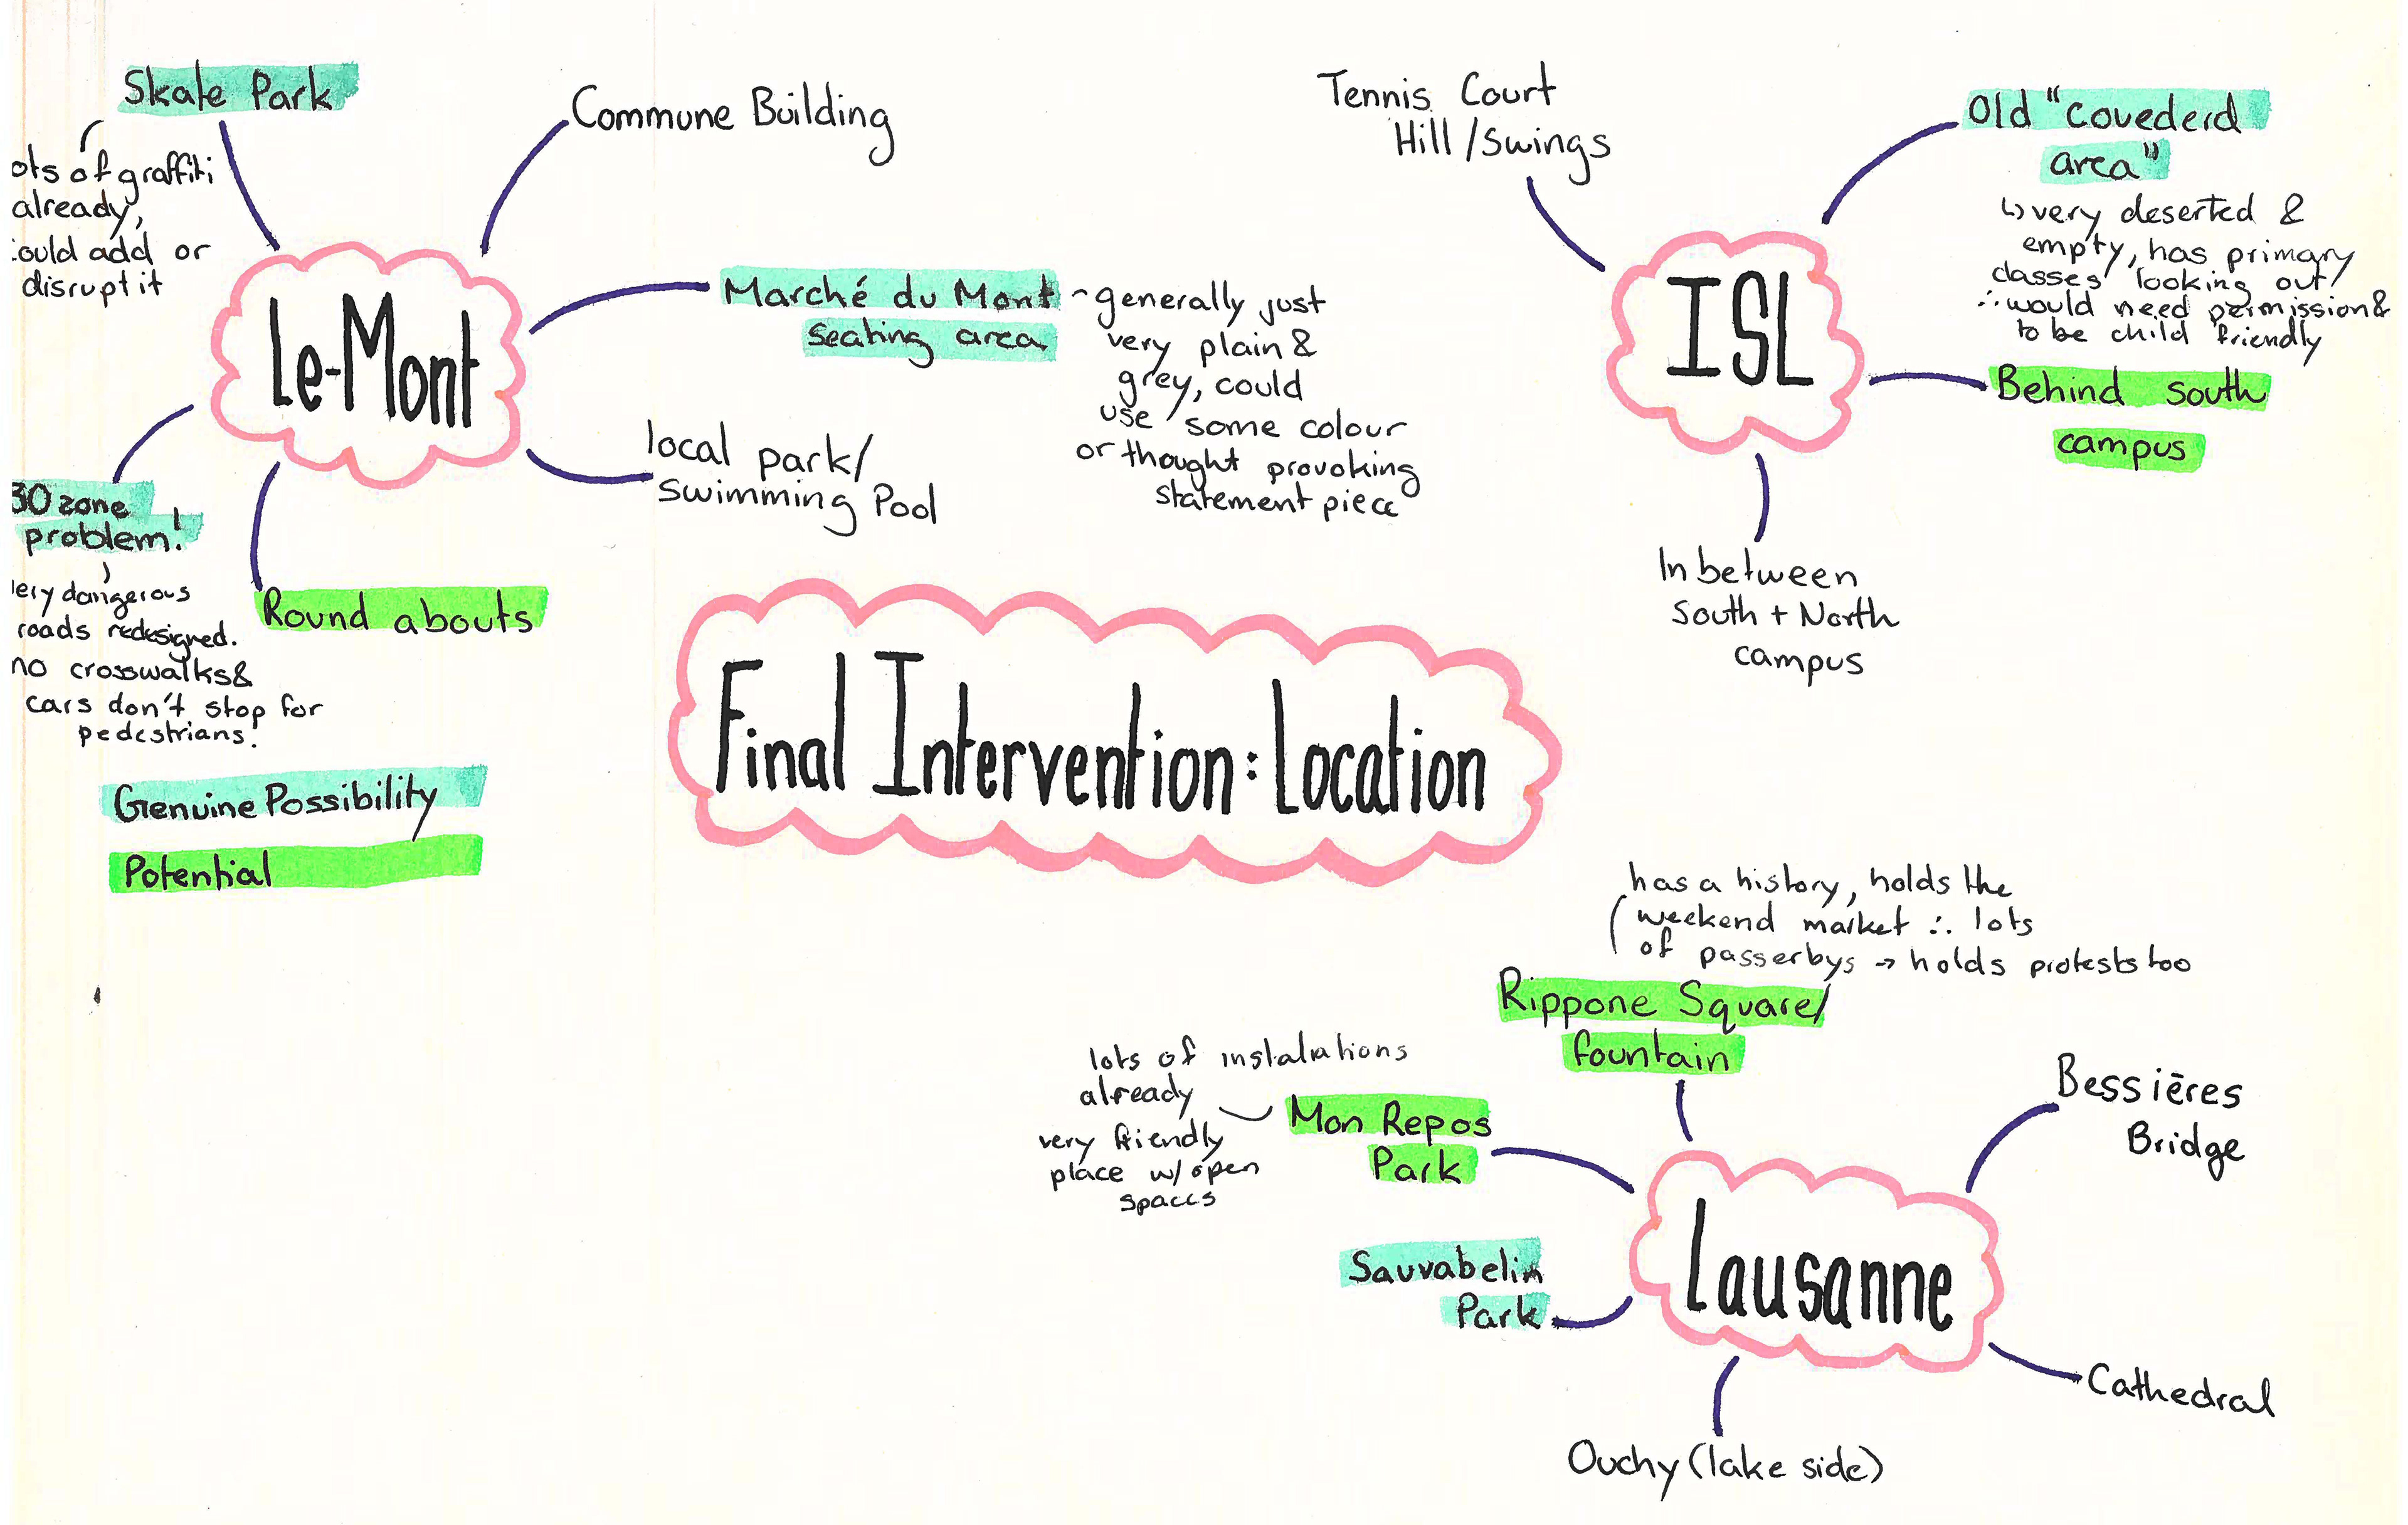 Skate Park
ots of graffiti
already,
could add or
disrupt it
Commune Building
Le-Mont
Marché du Mont
seating area
generally just
very plain &
grey, could
use some colour
or thought provoking
statement piece
local park/
Swimming Pool
30 zone
problem!
very dangerous
roads redesigned.
no crosswalks &
cars don't stop for
pedestrians!
Round abouts
Genuine Possibility
Potential
Final Intervention: Location
Tennis Court
Hill / swings
ISL
Old "covederd
area"
↳ very deserted &
empty, has primary
classes looking out
∴ would need permission &
to be child friendly
Behind south
campus
In between
South + North
campus
has a history, holds the
weekend market ∴ lots
of passerbys → holds protests too
Rippone Square/
fountain
lots of instalations
already
very friendly
place w/ open
spaces
Mon Repos
Park
Sauvabelin
Park
Lausanne
Bessiēres
Bridge
Cathedral
Ouchy (lake side)